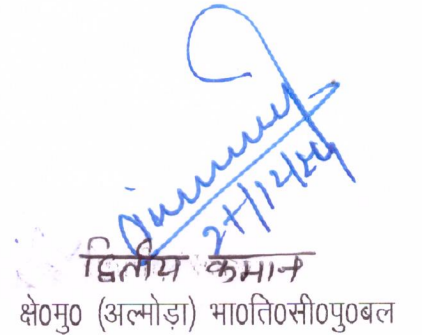 द्वितीय कमान
क्षे0मु0 (अल्मोड़ा) भा0ति0सी0पु0बल